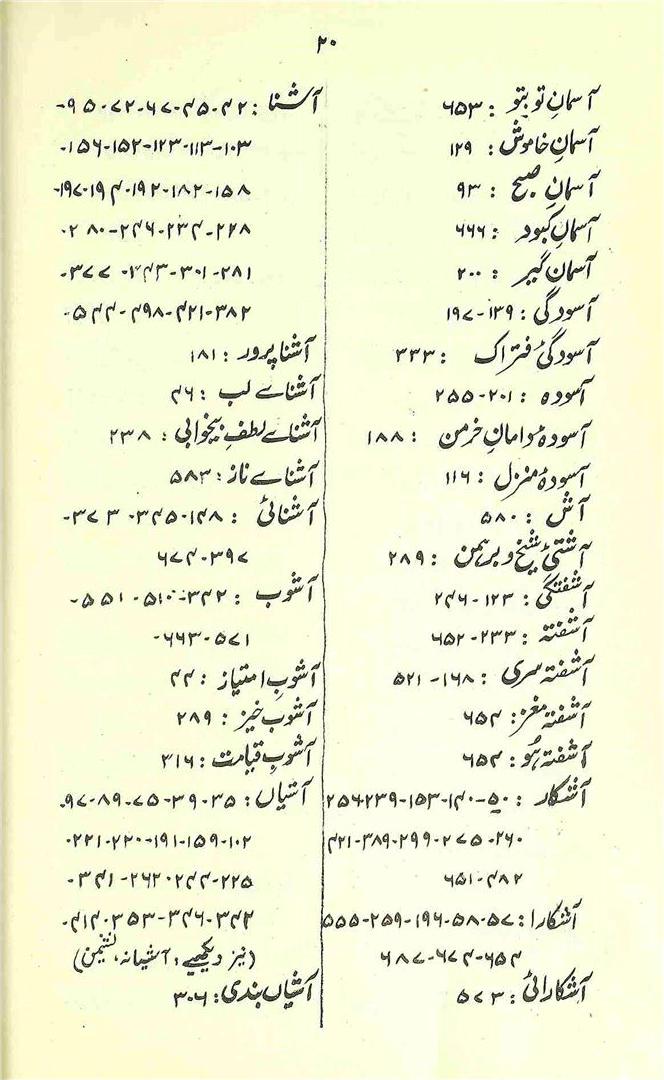 ۲۰
آسمانِ تو بتو : ۶۵۳
آسمانِ خاموش : ۱۲۹
آسمانِ صبح : ۹۳
آسمانِ کبود : ۶۶۶
آسمان گیر : ۲۰۰
آسودگی : ۱۳۹-۱۹۷
آسودگیٔ فتراک : ۳۳۳
آسودہ : ۲۰۱-۲۵۵
آسودۂ دامانِ خرمن : ۱۸۸
آسودۂ منزل : ۱۱۶
آش : ۵۸۰
آشتیٔ شیخ و برہمن : ۲۸۹
آشفتگی : ۱۲۳-۲۴۶
آشفتہ : ۲۳۳-۶۵۲
آشفتہ سری : ۱۶۸-۵۲۱
آشفتہ مغز : ۶۵۴
آشفتہ ہُو : ۶۵۴
آشکار : ۵۰-۱۴۰-۱۵۳-۲۳۹-۲۵۶
۲۶۰-۲۷۵-۲۹۹-۳۸۹-۴۲۱
۴۸۲-۶۵۱
آشکارا : ۵۷-۵۸-۱۹۶-۲۵۹-۵۵۵
۶۵۴-۶۷۴-۶۸۷
آشکارائی : ۵۷۳
آشنا : ۴۲-۴۵-۶۷-۷۲-۹۵-
۱۰۳-۱۱۳-۱۲۳-۱۵۲-۱۵۶-
۱۵۸-۱۸۲-۱۹۲-۱۹۴-۱۹۷-
۲۲۸-۲۳۴-۲۴۶-۲۸۰-
۲۸۱-۳۰۱-۳۴۳-۳۷۷-
۳۸۲-۴۲۱-۴۹۸-۵۴۴-
آشنا پرور : ۱۸۱
آشنائے لب : ۴۶
آشنائے لطفِ بیخوابی : ۲۳۸
آشنائے ناز : ۵۸۳
آشنائی : ۱۴۸-۳۴۵-۳۷۳-
۳۹۷-۶۷۴
آشوب : ۳۴۲-۵۱۰-۵۵۱-
۵۷۱-۶۶۳-
آشوبِ امتیاز : ۴۴
آشوب خیز : ۲۸۹
آشوبِ قیامت : ۳۱۶
آشیاں : ۳۵-۳۹-۷۵-۸۹-۹۷-
۱۰۲-۱۵۹-۱۹۱-۲۲۰-۲۲۱-
۲۲۵-۲۴۴-۲۶۲-۳۴۱-
۳۴۲-۳۴۶-۳۵۳-۴۱۴-
(نیز دیکھیے : آشیانہ، نشیمن)
آشیاں بندی : ۳۰۶